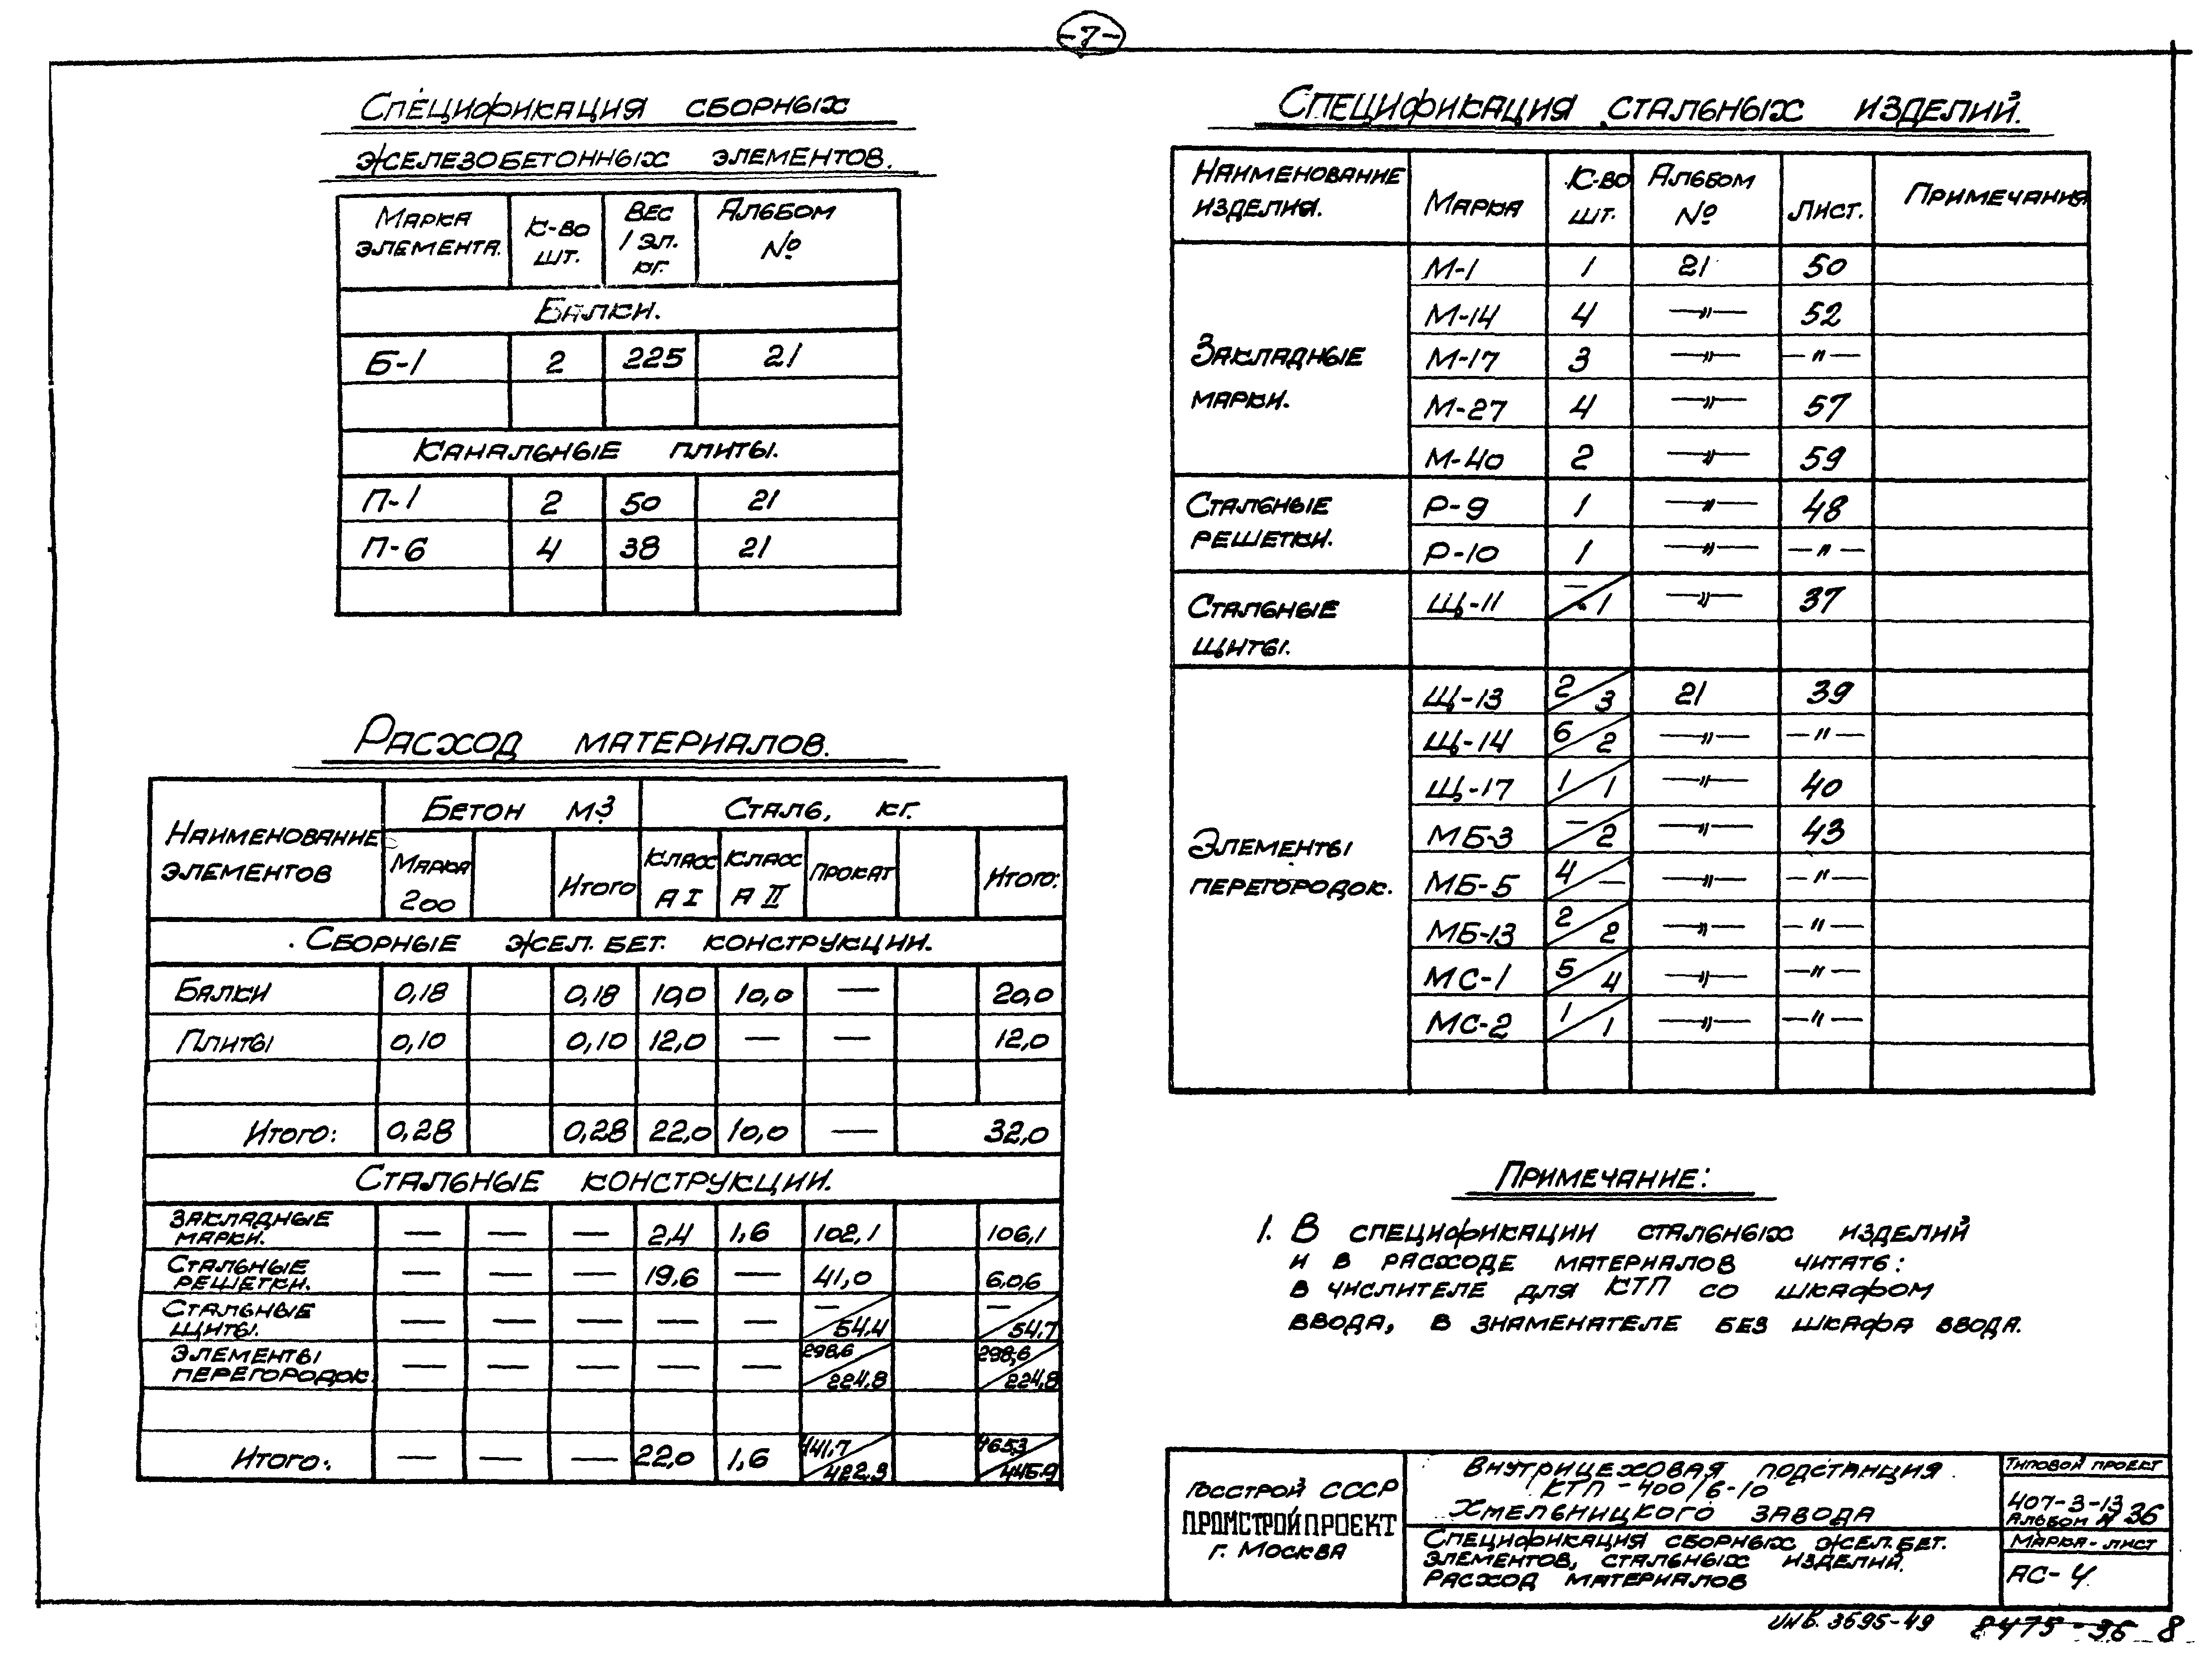 -7-
Спецификация сборных
железобетонных элементов.
Марка элемента. К-во шт. Вес 1 эл. кг. Альбом №
Балки.
Б-1 2 225 21
Канальные плиты.
П-1 2 50 21
П-6 4 38 21
Расход материалов.
Наименование элементов Бетон м3 Сталь, кг.
Марка 200 Итого Класс А I Класс А II Прокат Итого:
Сборные жел. бет. конструкции.
Балки 0,18 0,18 10,0 10,0 — 20,0
Плиты 0,10 0,10 12,0 — — 12,0
Итого: 0,28 0,28 22,0 10,0 — 32,0
Стальные конструкции.
Закладные марки. — — — 2,4 1,6 102,1 106,1
Стальные решетки. — — — 19,6 — 41,0 60,6
Стальные щиты. — — — — — —/54.4 —/54.7
Элементы перегородок. — — — — — 298,6/224.8 298,6/224.8
Итого: — — — 22,0 1,6 441.7/422.3 465.3/445.9
Спецификация стальных изделий.
Наименование изделия. Марка К-во шт. Альбом № Лист. Примечания
Закладные марки.
М-1 1 21 50
М-14 4 —"— 52
М-17 3 —"— —"—
М-27 4 —"— 57
М-40 2 —"— 59
Стальные решетки.
Р-9 1 —"— 48
Р-10 1 —"— —"—
Стальные щиты.
Щ-11 —/1 —"— 37
Элементы перегородок.
Щ-13 2/3 21 39
Щ-14 6/2 —"— —"—
Щ-17 1/1 —"— 40
МБ-3 —/2 —"— 43
МБ-5 4/— —"— —"—
МБ-13 2/2 —"— —"—
МС-1 5/4 —"— —"—
МС-2 1/1 —"— —"—
Примечание:
1. В спецификации стальных изделий
и в расходе материалов читать:
в числителе для КТП со шкафом
ввода, в знаменателе без шкафа ввода.
Госстрой СССР
ПРОМСТРОЙПРОЕКТ
г. Москва
Внутрицеховая подстанция
КТП-400/6-10
Хмельницкого завода
Спецификация сборных жел. бет.
элементов, стальных изделий.
Расход материалов
Типовой проект
407-3-13
Альбом № 36
Марка-лист
АС-4
инв. 3695-49 8475-36 8